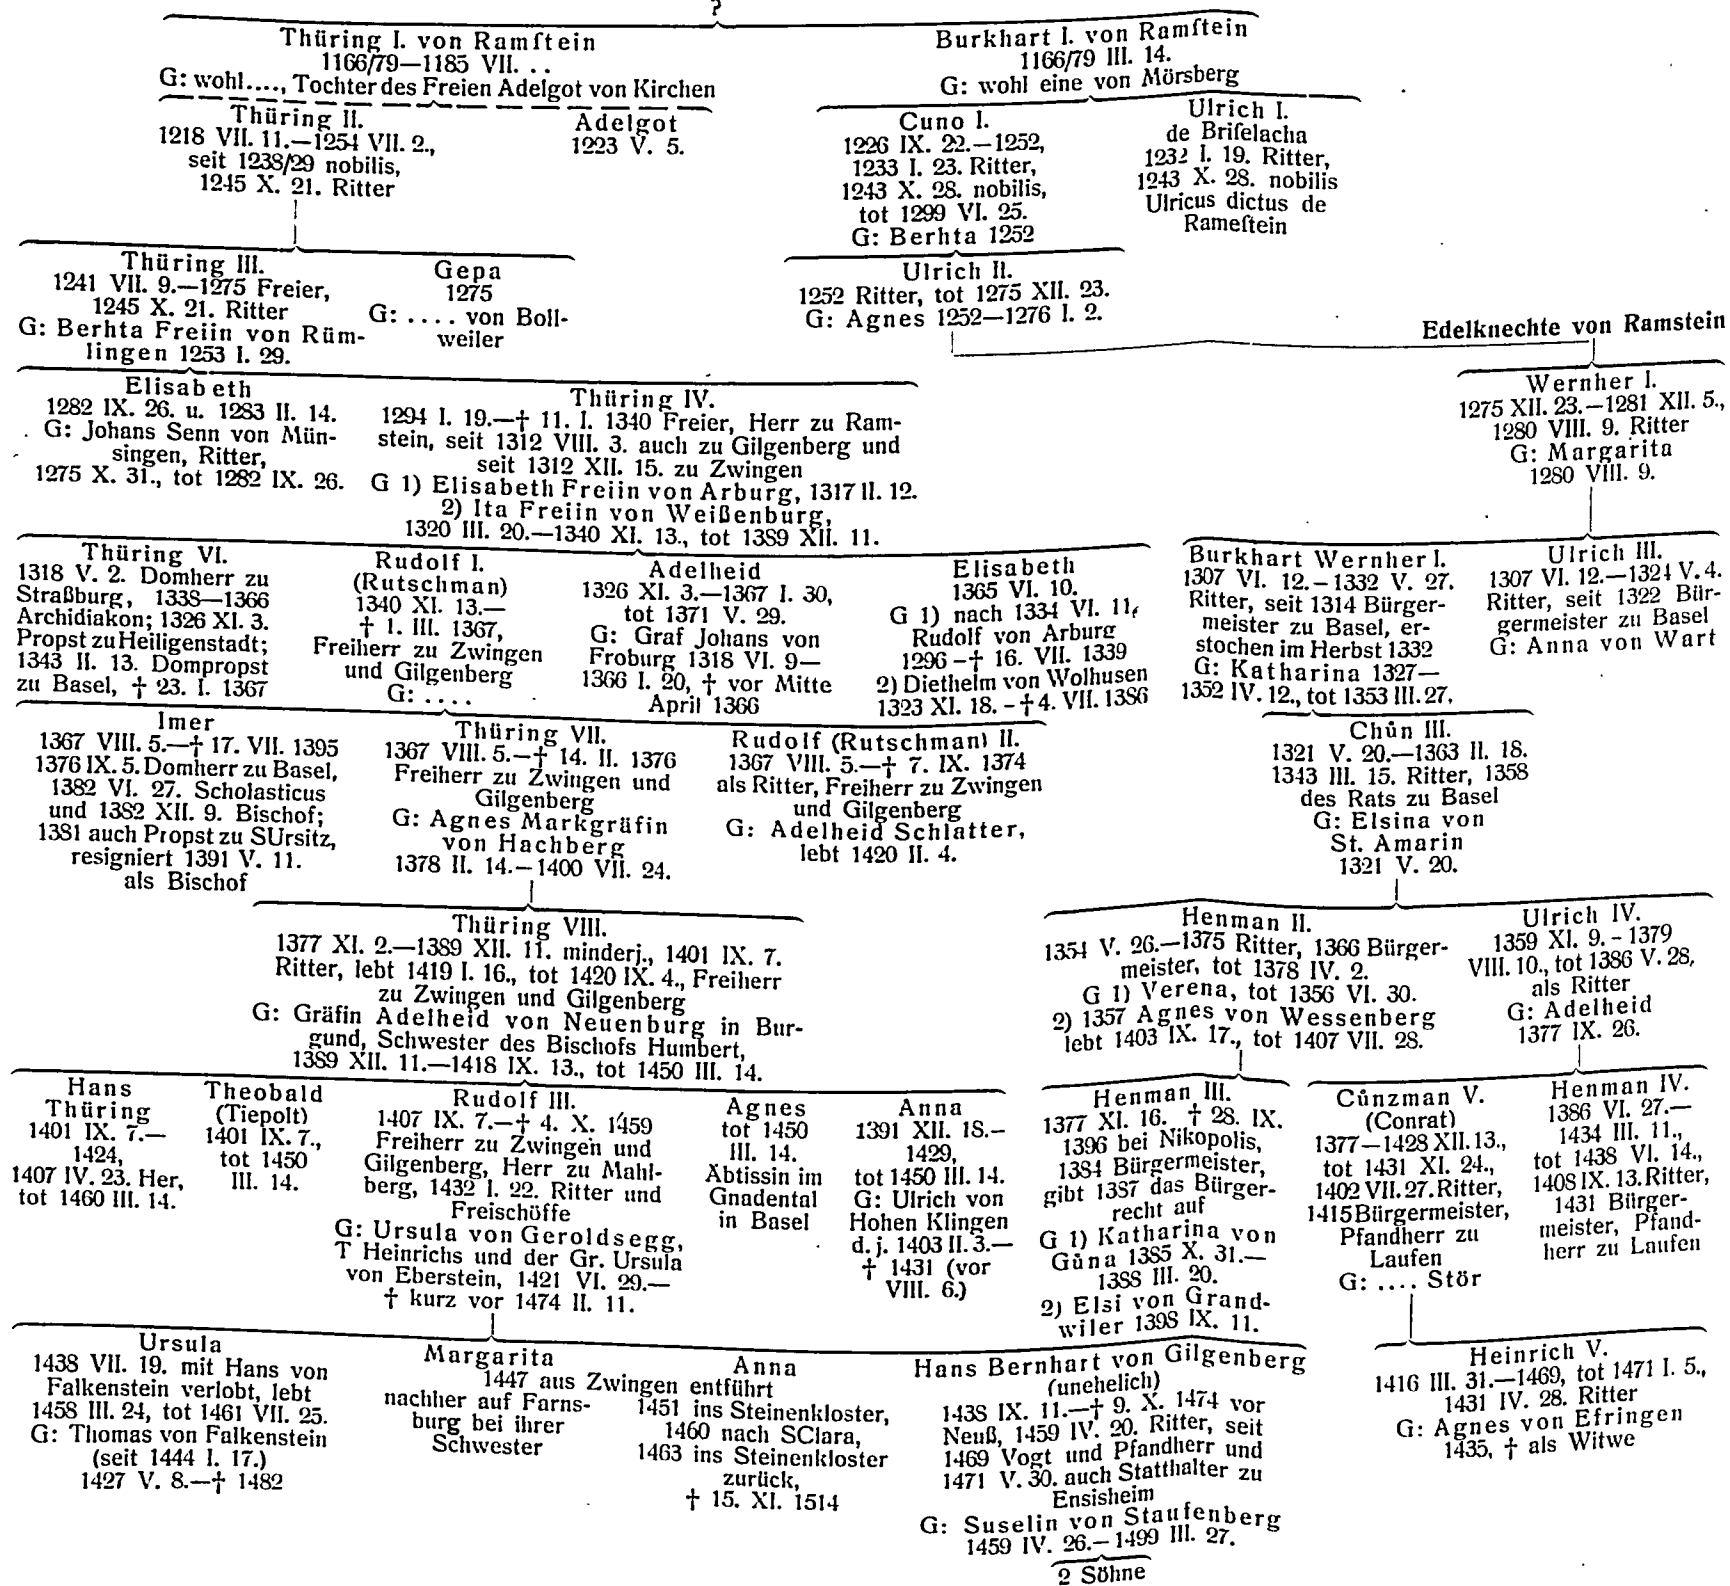 ?
Thüring I. von Ramſtein
1166/79—1185 VII. . .
G: wohl...., Tochter des Freien Adelgot von Kirchen
Burkhart I. von Ramſtein
1166/79 III. 14.
G: wohl eine von Mörsberg
Thüring II.
1218 VII. 11.—1254 VII. 2.,
seit 1238/29 nobilis,
1245 X. 21. Ritter
Adelgot
1223 V. 5.
Cuno I.
1226 IX. 22.—1252,
1233 I. 23. Ritter,
1243 X. 28. nobilis,
tot 1299 VI. 25.
G: Berhta 1252
Ulrich I.
de Briſelacha
1232 I. 19. Ritter,
1243 X. 28. nobilis
Ulricus dictus de
Rameſtein
Thüring III.
1241 VII. 9.—1275 Freier,
1245 X. 21. Ritter
G: Berhta Freiin von Rüm-
lingen 1253 I. 29.
Gepa
1275
G: .... von Boll-
weiler
Ulrich II.
1252 Ritter, tot 1275 XII. 23.
G: Agnes 1252—1276 I. 2.
Edelknechte von Ramstein
Elisabeth
1282 IX. 26. u. 1283 II. 14.
G: Johans Senn von Mün-
singen, Ritter,
1275 X. 31., tot 1282 IX. 26.
Thüring IV.
1294 I. 19.—† 11. I. 1340 Freier, Herr zu Ram-
stein, seit 1312 VIII. 3. auch zu Gilgenberg und
seit 1312 XII. 15. zu Zwingen
G 1) Elisabeth Freiin von Arburg, 1317 II. 12.
2) Ita Freiin von Weißenburg,
1320 III. 20.—1340 XI. 13., tot 1389 XII. 11.
Wernher I.
1275 XII. 23.—1281 XII. 5.,
1280 VIII. 9. Ritter
G: Margarita
1280 VIII. 9.
Thüring VI.
1318 V. 2. Domherr zu
Straßburg, 1338—1366
Archidiakon; 1326 XI. 3.
Propst zu Heiligenstadt;
1343 II. 13. Dompropst
zu Basel, † 23. I. 1367
Rudolf I.
(Rutschman)
1340 XI. 13.—
† 1. III. 1367,
Freiherr zu Zwingen
und Gilgenberg
G: ....
Adelheid
1326 XI. 3.—1367 I. 30,
tot 1371 V. 29.
G: Graf Johans von
Froburg 1318 VI. 9—
1366 I. 20, † vor Mitte
April 1366
Elisabeth
1365 VI. 10.
G 1) nach 1334 VI. 11,
Rudolf von Arburg
1296 -† 16. VII. 1339
2) Diethelm von Wolhusen
1323 XI. 18. -† 4. VII. 1386
Burkhart Wernher I.
1307 VI. 12.-1332 V. 27.
Ritter, seit 1314 Bürger-
meister zu Basel, er-
stochen im Herbst 1332
G: Katharina 1327—
1352 IV. 12., tot 1353 III. 27.
Ulrich III.
1307 VI. 12.—1324 V. 4.
Ritter, seit 1322 Bür-
germeister zu Basel
G: Anna von Wart
Imer
1367 VIII. 5.—† 17. VII. 1395
1376 IX. 5. Domherr zu Basel,
1382 VI. 27. Scholasticus
und 1382 XII. 9. Bischof;
1381 auch Propst zu SUrsitz,
resigniert 1391 V. 11.
als Bischof
Thüring VII.
1367 VIII. 5.—† 14. II. 1376
Freiherr zu Zwingen und
Gilgenberg
G: Agnes Markgräfin
von Hachberg
1378 II. 14.—1400 VII. 24.
Rudolf (Rutschman) II.
1367 VIII. 5.—† 7. IX. 1374
als Ritter, Freiherr zu Zwingen
und Gilgenberg
G: Adelheid Schlatter,
lebt 1420 II. 4.
Chůn III.
1321 V. 20.—1363 II. 18.
1343 III. 15. Ritter, 1358
des Rats zu Basel
G: Elsina von
St. Amarin
1321 V. 20.
Thüring VIII.
1377 XI. 2.—1389 XII. 11. minderj., 1401 IX. 7.
Ritter, lebt 1419 I. 16., tot 1420 IX. 4., Freiherr
zu Zwingen und Gilgenberg
G: Gräfin Adelheid von Neuenburg in Bur-
gund, Schwester des Bischofs Humbert,
1389 XII. 11.—1418 IX. 13., tot 1450 III. 14.
Henman II.
1354 V. 26.—1375 Ritter, 1366 Bürger-
meister, tot 1378 IV. 2.
G 1) Verena, tot 1356 VI. 30.
2) 1357 Agnes von Wessenberg
lebt 1403 IX. 17., tot 1407 VII. 28.
Ulrich IV.
1359 XI. 9. - 1379
VIII. 10., tot 1386 V. 28,
als Ritter
G: Adelheid
1377 IX. 26.
Hans
Thüring
1401 IX. 7.—
1424,
1407 IV. 23. Her,
tot 1460 III. 14.
Theobald
(Tiepolt)
1401 IX. 7.,
tot 1450
III. 14.
Rudolf III.
1407 IX. 7.—† 4. X. 1459
Freiherr zu Zwingen und
Gilgenberg, Herr zu Mahl-
berg, 1432 I. 22. Ritter und
Freischöffe
G: Ursula von Geroldsegg,
T Heinrichs und der Gr. Ursula
von Eberstein, 1421 VI. 29.—
† kurz vor 1474 II. 11.
Agnes
tot 1450
III. 14.
Äbtissin im
Gnadental
in Basel
Anna
1391 XII. 18.-
1429,
tot 1450 III. 14.
G: Ulrich von
Hohen Klingen
d. j. 1403 II. 3.—
† 1431 (vor
VIII. 6.)
Henman III.
1377 XI. 16. † 28. IX.
1396 bei Nikopolis,
1384 Bürgermeister,
gibt 1387 das Bürger-
recht auf
G 1) Katharina von
Gůna 1385 X. 31.—
1388 III. 20.
2) Elsi von Grand-
wiler 1398 IX. 11.
Cůnzman V.
(Conrat)
1377—1428 XII. 13.,
tot 1431 XI. 24.,
1402 VII. 27. Ritter,
1415 Bürgermeister,
Pfandherr zu
Laufen
G: .... Stör
Henman IV.
1386 VI. 27.—
1434 III. 11.,
tot 1438 VI. 14.,
1408 IX. 13. Ritter,
1431 Bürger-
meister, Pfand-
herr zu Laufen
Ursula
1438 VII. 19. mit Hans von
Falkenstein verlobt, lebt
1458 III. 24, tot 1461 VII. 25.
G: Thomas von Falkenstein
(seit 1444 I. 17.)
1427 V. 8.—† 1482
Margarita Anna
1447 aus Zwingen entführt
nachher auf Farns-
burg bei ihrer
Schwester
1451 ins Steinenkloster,
1460 nach SClara,
1463 ins Steinenkloster
zurück,
† 15. XI. 1514
Hans Bernhart von Gilgenberg
(unehelich)
1438 IX. 11.—† 9. X. 1474 vor
Neuß, 1459 IV. 20. Ritter, seit
1469 Vogt und Pfandherr und
1471 V. 30. auch Statthalter zu
Ensisheim
G: Suselin von Staufenberg
1459 IV. 26.—1499 III. 27.
2 Söhne
Heinrich V.
1416 III. 31.—1469, tot 1471 I. 5.,
1431 IV. 28. Ritter
G: Agnes von Efringen
1435, † als Witwe